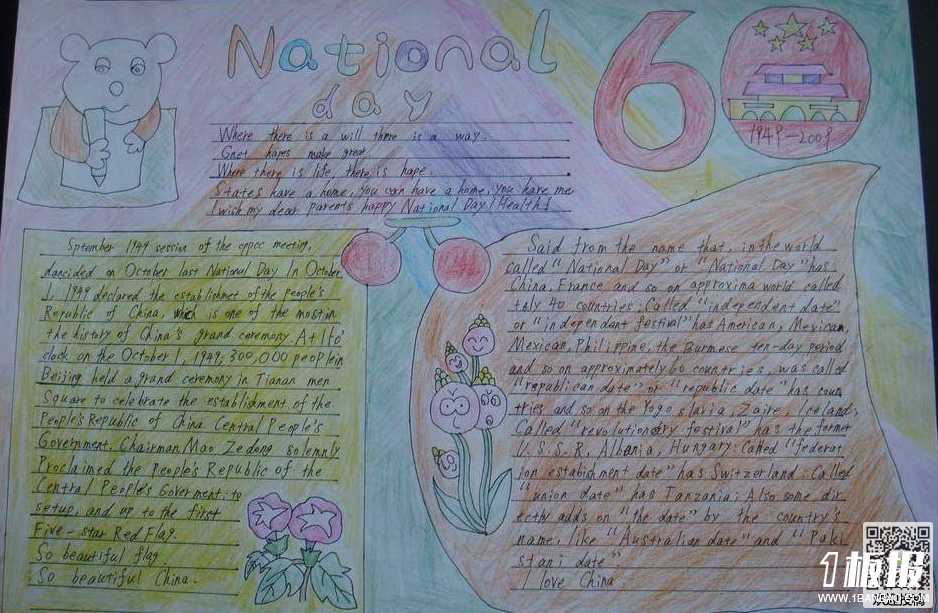 National
day
60
1949-2009
Where there is a will there is a way.
Gnet hapes make great
Where there is life, there is hape.
States have a home, you can have a home, you have me,
I wish my dear parents happy National Day! Health!
Sptember 1949 session of the cppcc meeting,
dancided on October last National Day In October
1, 1949 declared the establishmet of the people's
Republic of China, which is one of the mostin
the history of China's grand ceremony. At 1 to'
clock on the October 1, 1949; 300,000 peoplein
Beijing held a grand ceremony in Tianan men
Square to celebrate the establishment of the
People's Republic of China Central People's
Government. Chairman Mao Zedong solemnly
Proclaimed the People's Republic of the
Central People's Goverment: to
setup, and up to the first
Five-star Red Flag.
So beautiful flag
So beautiful China.
Said from the name that, in the world
called "National Day" or "National Day" has
China, France and so on approxima world called
tely 40 countries; Called "independent date"
or "independant festival" has American, Mexican,
Mexican, Philippine, the Burmese ten-day period
and so on approximately 60 countries, was called
"republican date" or "republic date" has coun
tries and so on the Yogo slavia, Zaire, Iceland;
Called "revolutionary festival" has the former
U.S.S.R, Albania, Hungary; Called "federat
ion establishment date" has Switzerland; Called
"union date" has Tanzania; Also some dir
ecthy adds on "the date" by the country's
name, like "Australian date" and "Paki
stani date".
I love China.
1板报
WWW.1BANBAO.COM